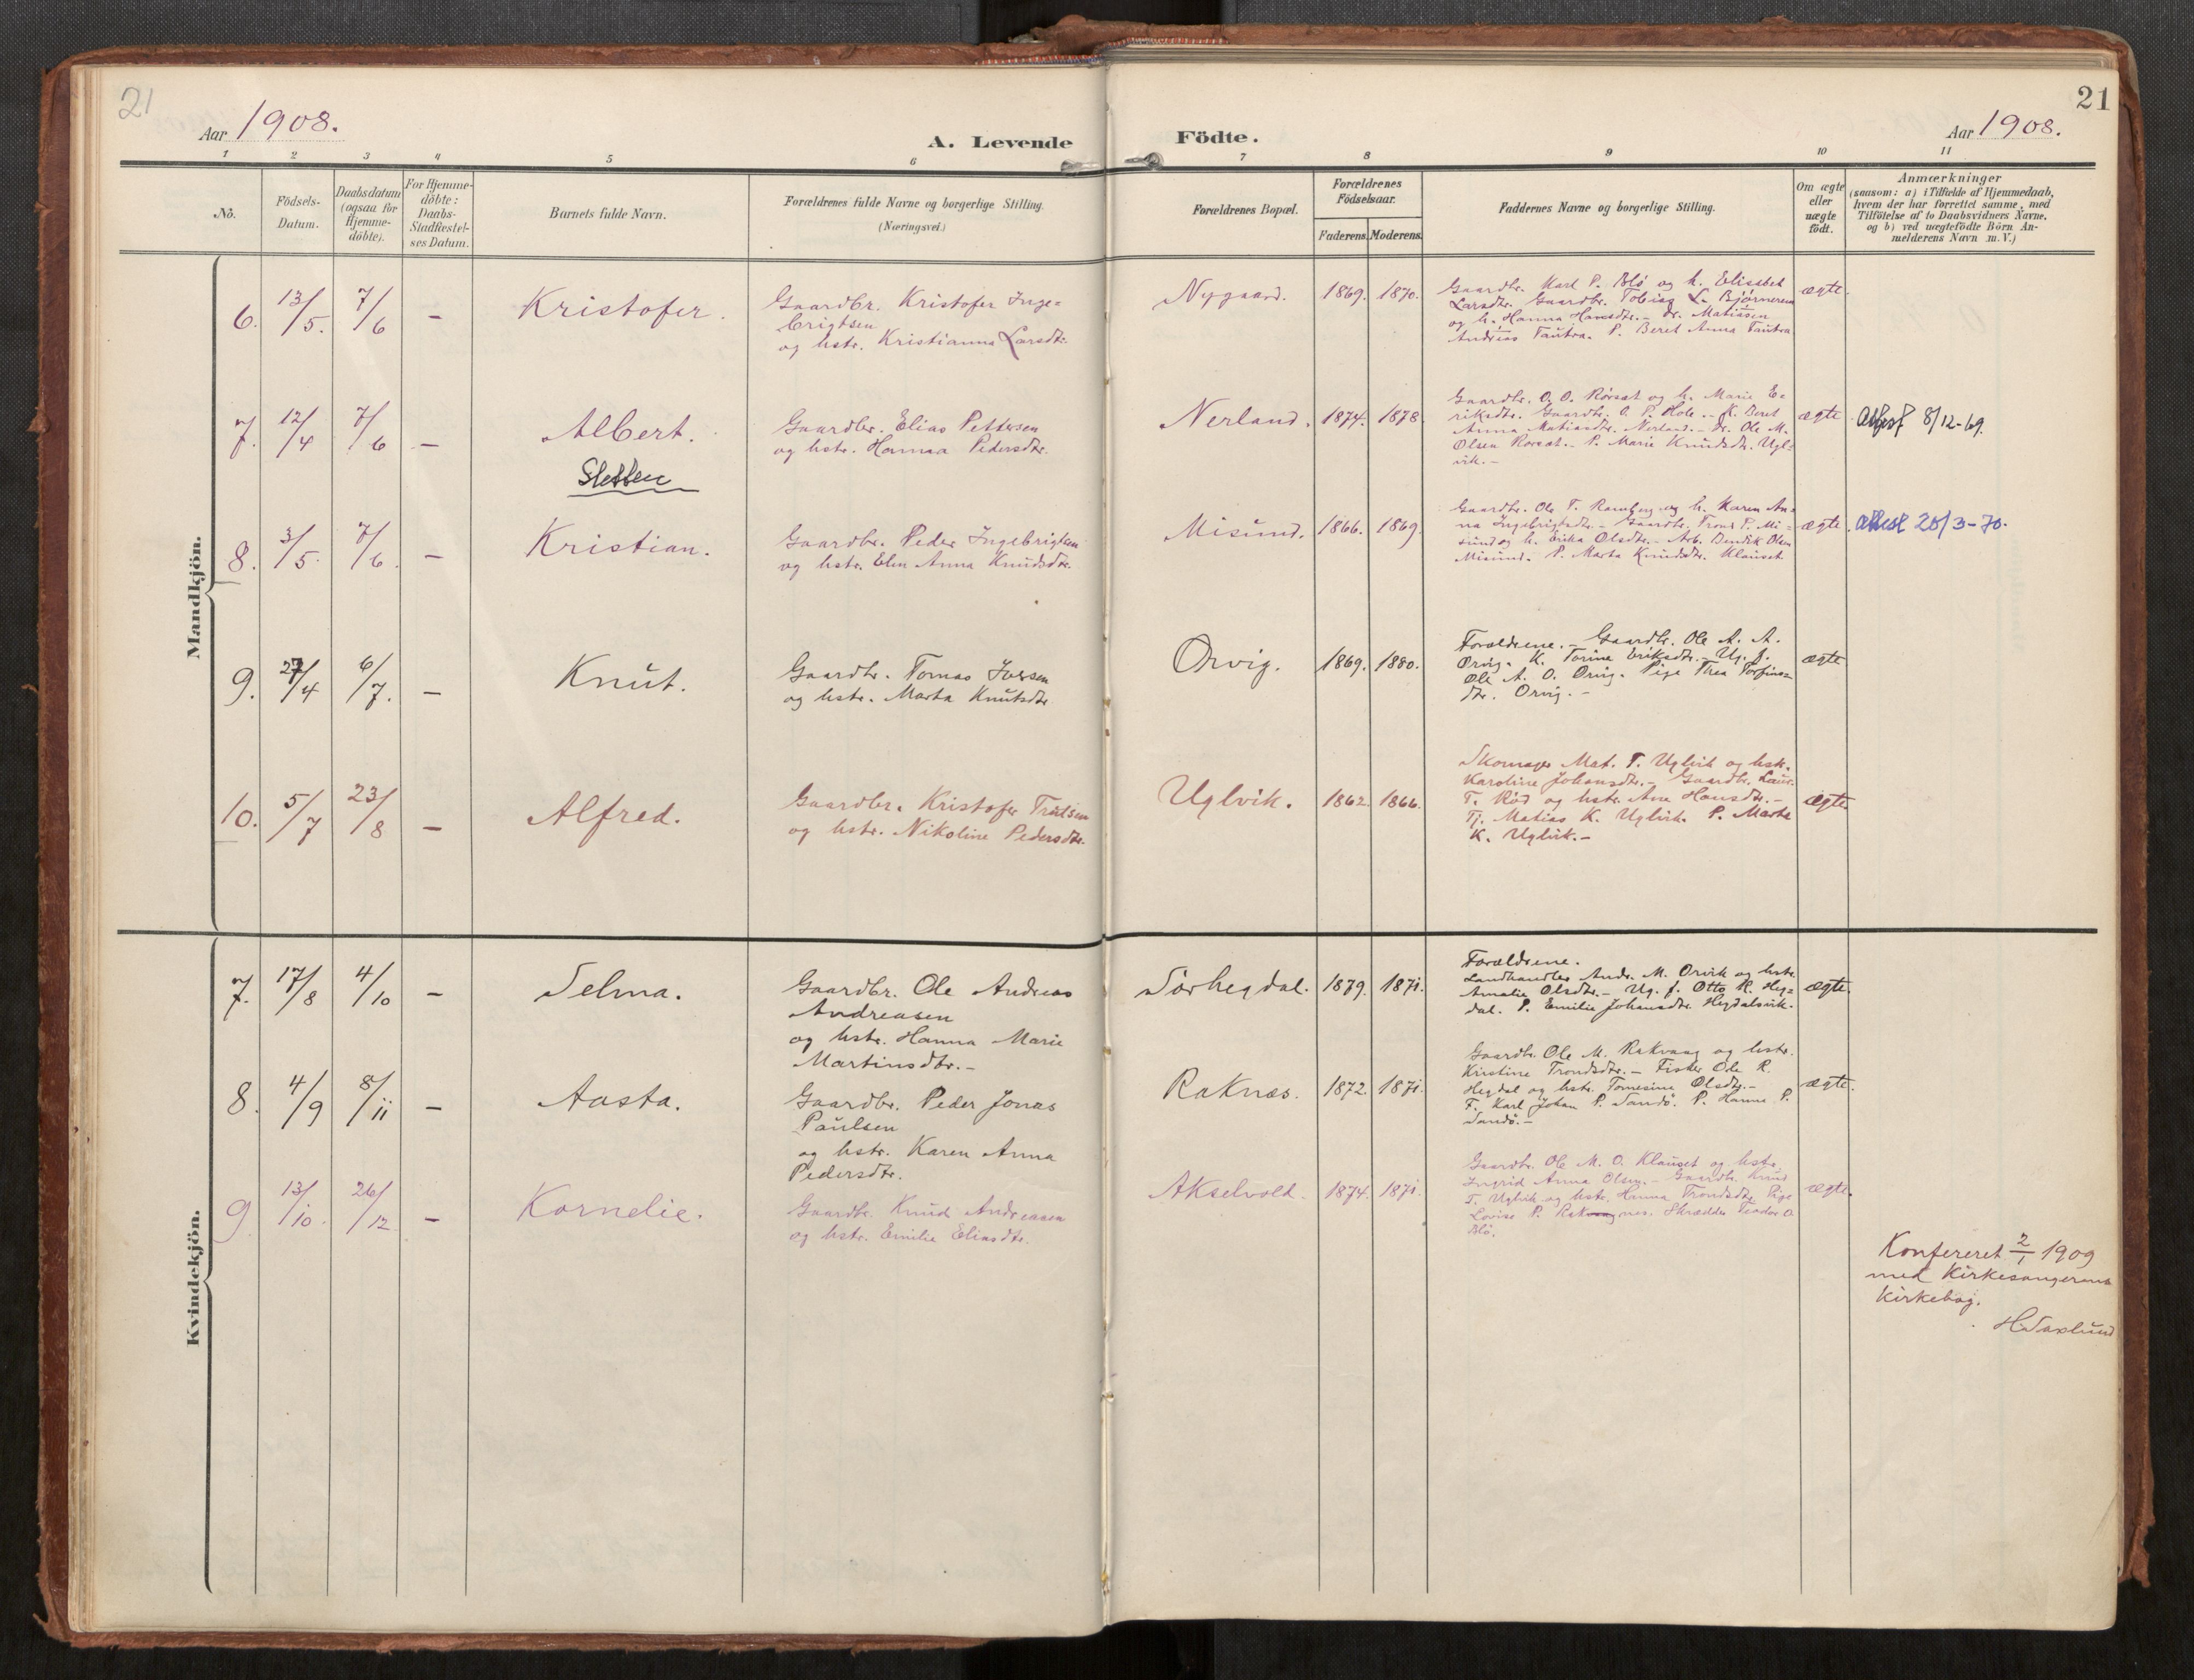 21
Aar 1908.
A. Levende Födte.
Aar 1908.
21
1 2 3 4 5 6 7 8 9 10 11
No.
Födsels-
Datum.
Daabsdatum
(ogsaa for
Hjemme-
döbte).
For Hjemme-
döbte:
Daabs-
Stadfæstel-
ses Datum.
Barnets fulde Navn.
Forældrenes fulde Navne og borgerlige Stilling.
(Næringsvei.)
Forældrenes Bopæl.
Forældrenes
Födselsaar.
Faderens. Moderens.
Faddernes Navne og borgerlige Stilling.
Om ægte
eller
uægte
födt.
Anmærkninger
(saasom: a) i Tilfælde af Hjemmedaab,
hvem der har forrettet samme, med
Tilföielse af to Daabsvidners Navne,
og b) ved uægtefödte Börn An-
melderens Navn m. V.)
Mandkjön.
6. 13/5. 7/6 – Kristofer.
Gaardbr. Kristofer Inge=
brigtsen
og hstr. Kristianna Larsdtr.
Nygaard. 1869. 1870.
Gaardbr. Karl P. Blö og h. Elisabet
Larsdtr. Gaardbr. Tobias L. Bjørnerem
og h. Hanna Hansdtr. – Dr. Matiasen
Andreas Tautra. P. Beret Anna Tautra
ægte.
7. 12/4 7/6 – Albert.
Sletten
Gaardbr. Elias Pettersen
og hstr. Hanna Pedersdtr.
Nerland. 1874. 1878.
Gaardbr. O. O. Rörsæt og h. Marie E=
riksdtr. Gaardbr. O. P. Hole. – K. Beret
Anna Matiasdtr. Nerland. – Dr. Ole M.
Olsen Rorsæt. – P. Marie Knudsdtr. Ugl=
vik. –
ægte. Attest 8/12-69.
8. 3/5. 7/6. – Kristian.
Gaardbr. Peder Ingebrigtsen
og hstr. Elen Anna Knudsdtr.
Misund. 1866. 1869.
Gaardbr. Ole T. Ramberg og h. Karen An=
na Ingebrigtsdtr. – Gaardbr. Trond P. Mi=
sund og h. Erika Olsdtr. – Arb. Bendik Olsen
Misund. P. Marta Knudsdtr. Klauset.
ægte. Attest 20/3-70.
9. 27/4 6/7. – Knut.
Gaardbr. Tomas Iversen
og hstr. Marta Knutsdtr
Orvig. 1869. 1880.
Forældrene. – Gaardbr. Ole A. A.
Orvig. K. Torine Eriksdtr. – Ug. f.
Ole A. O. Orvig. Pige Thea Torfins=
dtr. Orvig. –
ægte
10. 5/7 23/8 – Alfred.
Gaardbr. Kristofer Trulsen
og hstr. Nikoline Pedersdtr.
Uglvik. 1862. 1866.
Skomager Mat. T. Uglvik og hsk.
Karoline Johansdtr. – Gaardbr. Laur.
T. Rød og hstr. Ane Hansdtr. –
Tj. Matias K. Uglvik. P. Marta
K. Uglvik. –
ægte
Kvindekjön.
7. 17/8 4/10 – Selma.
Gaardbr. Ole Andreas
Andreasen
og hstr. Hanna Marie
Martinsdtr. –
Sörhegdal. 1879. 1871.
Forældrene.
Landhandler Andr. M. Orvik og hstr.
Amalie Olsdtr. – Ug. f. Otto K. Heg=
dal. P. Emilie Johansdtr. Hegdalsvik.
ægte.
8. 4/9 8/11 – Aasta.
Gaardbr. Peder Jonas
Paulsen
og hstr. Karen Anna
Pedersdtr.
Raknæs. 1872. 1871.
Gaardbr. Ole M. Rakvaag og hstr.
Kristine Trondsdtr. – Fisker Ole R.
Hegdal og hstr. Tomesine Olsdtr. –
F. Karl Johan P. Sandö. P. Hanna P.
Sandö. –
ægte.
9. 13/10. 26/12. – Kornelie.
Gaardbr. Knud Andreasen
og hstr. Emilie Eliasdtr.
Akselvold. 1874. 1871.
Gaardbr. Ole M. O. Klauset og hstr.
Ingrid Anna Olsen. – Gaardbr. Knud
T. Uglvik og hstr. Hanna Trondsdtr. Pige
Lovise P. Raknes. Skrædder Teodor O.
Blö.
ægte.
Konfereret 2/1 1909
med Kirkesangerens
Kirkebog.
H. Saxlund